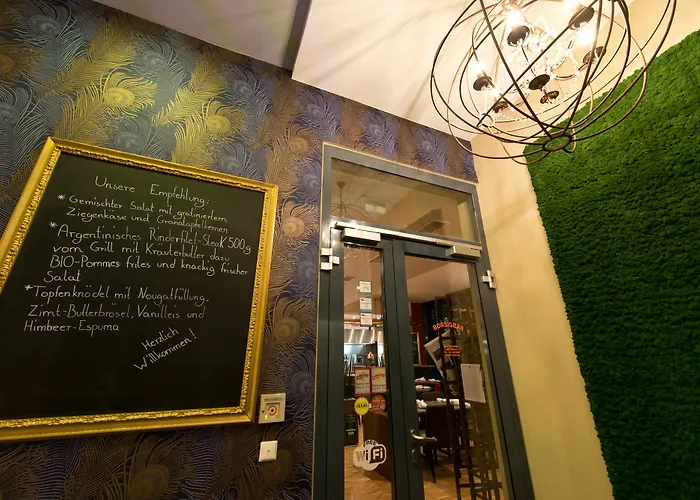 Unsere Empfehlung:
* Gemischter Salat mit gratiniertem
Ziegenkäse und Granatapfelkernen
* Argentinisches Rinderfilet-Steak 500g
vom Grill mit Kräuterbutter dazu
BIO-Pommes frites und knackig frischer
Salat
* Topfenknödel mit Nougatfüllung,
Zimt-Butterbrösel, Vanilleis und
Himbeer-Espuma
Herzlich
Willkommen!
BORSIGBAR
WiFi